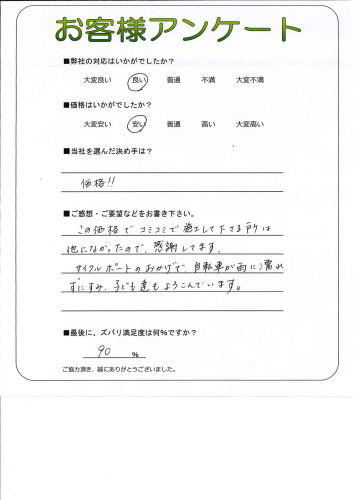 お客様アンケート
■弊社の対応はいかがでしたか？
大変良い 良い 普通 不満 大変不満
■価格はいかがでしたか？
大変安い 安い 普通 高い 大変高い
■当社を選んだ決め手は？
価格!!
■ご感想・ご要望などをお書き下さい。
この価格でコミコミで施工して下さる所は
他になかったので、感謝してます。
サイクルポートのおかげで、自転車が雨に濡れ
ずにすみ、子ども達もようこんでいます。
■最後に、ズバリ満足度は何%ですか？
90 %
ご協力頂き、誠にありがとうございました。